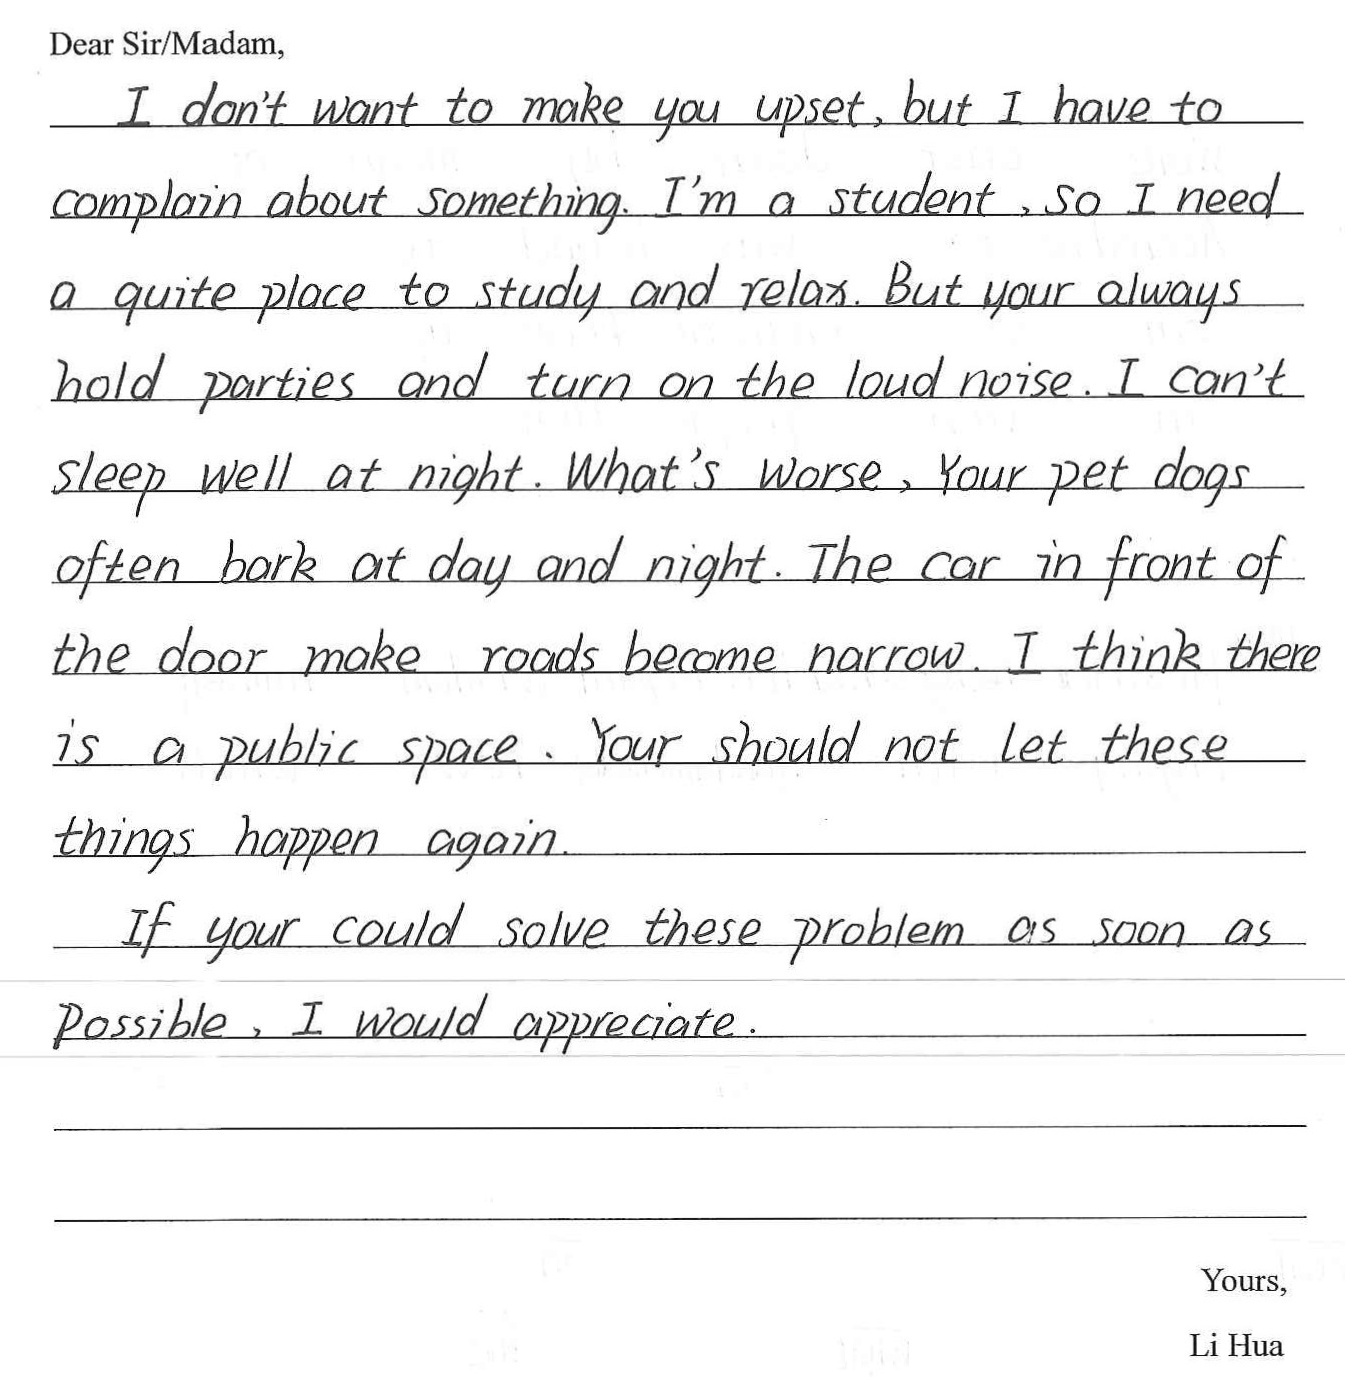 Dear Sir/Madam,
I don't want to make you upset, but I have to
complain about something. I'm a student, so I need
a quite place to study and relax. But your always
hold parties and turn on the loud noise. I can't
sleep well at night. What's worse, Your pet dogs
often bark at day and night. The car in front of
the door make roads become narrow. I think there
is a public space. Your should not let these
things happen again.
If your could solve these problem as soon as
Possible, I would appreciate.
Yours,
Li Hua